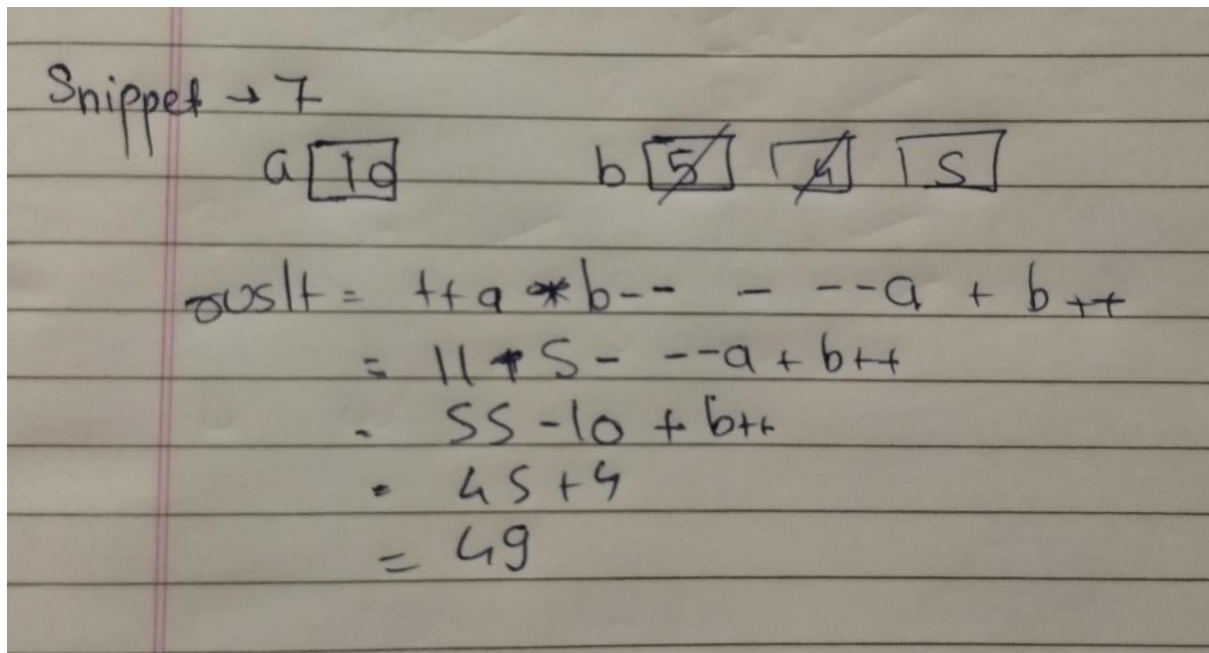 Snippet → 7
a 10 b 5 4 5
ruslt = ++a * b-- - --a + b++
= 11 * 5 - --a + b++
= 55 - 10 + b++
= 45 + 4
= 49